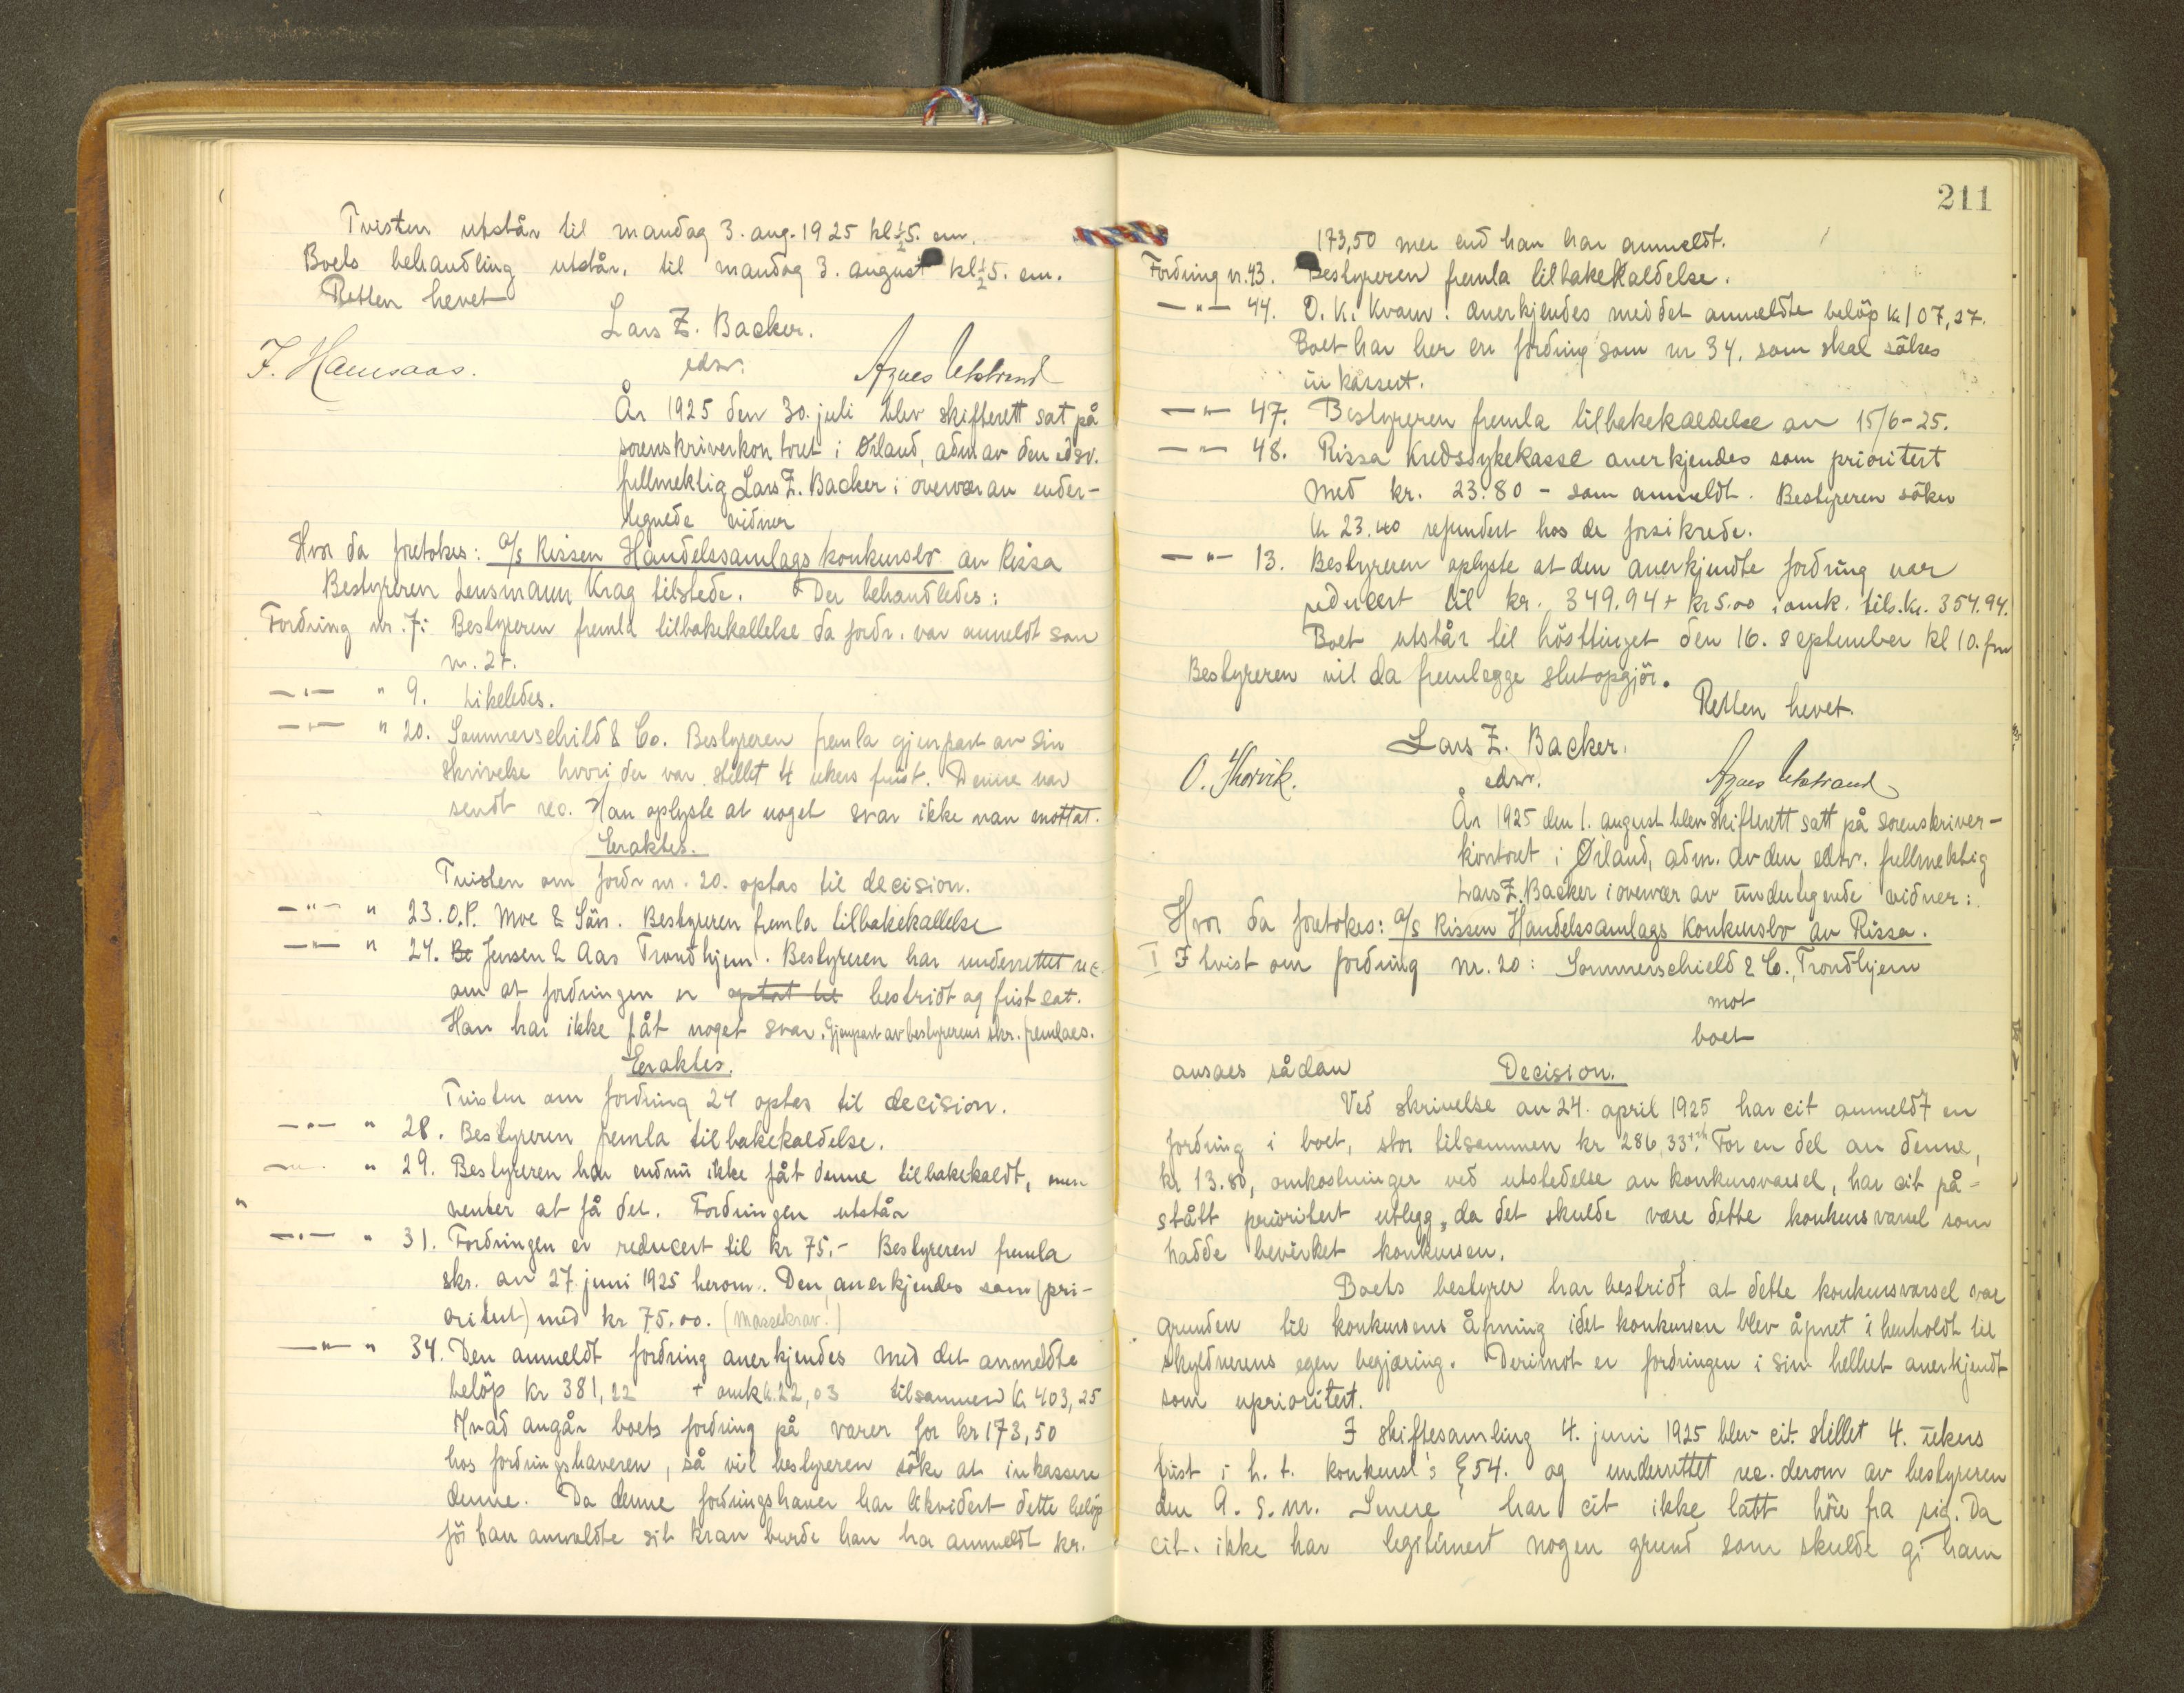 Tvisten utstår til mandag 3. aug. 1925 kl ½5. em.
Boets behandling utstår. til mandag 3. august kl ½5. em.
Retten hevet
Lars Z. Backer.
edsv.
F. Hamsaas.
Agnes Utstrand
År 1925 den 30. juli blev skifterett sat på
sorenskriverkontoret i Ørland, adm av den edsv.
fullmektig Lars Z. Backer i overvær av under-
tegnede vidner
Hvor da foretokes: A/S Rissen Handelssamlags konkursbo av Rissa
Bestyreren Lensmann Krag tilstede. Der behandledes:
Fordring nr. 7: Bestyreren fremla tilbakekallelse da fordr. var anmeldt som
nr. 27.
—"— " 9. Likeledes.
—"— " 20. Sommerschild & Co. Bestyreren fremla gjenpart av sin
skrivelse hvori der var stillet 4 ukers frist. Denne var
sendt rec. Han oplyste at noget svar ikke var mottat.
Eraktes.
Tvisten om fordr nr. 20. optas til decision.
—"— " 23. O.P. Moe & Sön. Bestyreren fremla tilbakekallelse
—"— " 24. Be Jensen & Aas Trondhjem. Bestyreren har underrettet rec
om at fordringen er optat til bestridt og frist sat.
Han har ikke fåt noget svar. Gjenpart av bestyrerens skr. fremlaes.
Eraktes.
Tvisten om fordring 24 optas til decision.
—"— " 28. Bestyreren fremla tilbakekaldelse.
—"— " 29. Bestyreren har endnu ikke fåt denne tilbakekaldt, men
venter at få det. Fordringen utstår
—"— " 31. Fordringen er reducert til kr 75,- Bestyreren fremla
skr. av 27 juni 1925 herom. Den anerkjendes som (pri-
oritert) med kr 75.00. (Massekrav!)
—"— " 34. Den anmeldt fordring anerkjendes med det anmeldte
belöp kr 381,22 + omk k. 22,03 tilsammen kr 403,25
Hvad angår boets fordring på varer for kr 173,50
hos fordringshaveren, så vil bestyreren söke at inkassere
denne. Da denne fordringshaver har likvidert dette belöp
för han anmeldte sit krav burde han ha anmeldt kr.
211
173,50 mer end han har anmeldt.
Fordring nr. 43. Bestyreren fremla tilbakekaldelse.
—"— 44. O. K. Kvam: anerkjendes med det anmeldte belöp kr 107,27.
Boet har her en fordring som nr 34. som skal sökes
inkassert.
—"— 47. Bestyreren fremla tilbakekaldelse av 15/6-25.
—"— 48. Rissa Kredssykekasse anerkjendes som prioritert
med kr. 23.80 - som anmeldt. Bestyreren söker
kr 23.40 refundert hos de forsikrede.
—"— 13. Bestyreren oplyste at den anerkjendte fordring var
reducert til kr. 349.94 + kr 5.00 i omk. tils. kr. 354.94.
Boet utstår til hösttinget den 16. september kl 10. fm
Bestyreren vil da fremlegge slutopgjör.
Retten hevet.
Lars Z. Backer.
edsv.
O. Thorvik.
Agnes Utstrand
År 1925 den 1. august blev skifterett satt på sorenskriver-
kontoret i Ørland, adm. av den edsv. fullmektig
Lars Z. Backer i overvær av undertegnede vidner:
Hvor da foretokes: A/S Rissen Handelssamlags Konkursbo av Rissa.
I I tvist om fordring nr. 20: Sommerschield & Co., Trondhjem
mot
boet
ansaes sådan
Decision.
Ved skrivelse av 24. april 1925 har cit anmeldt en
fordring i boet, stor tilsammen kr 286,33 For en del av denne,
kr 13.80, omkostninger ved utstedelse av konkursvarsel, har cit på-
stått prioritert utlegg, da det skulde være dette konkursvarsel som
hadde bevirket konkursen.
Boets bestyrer har bestridt at dette konkursvarsel var
grunden til konkursens åpning idet konkursen blev åpnet i henholdt til
skyldnerens egen begjæring. Derimot er fordringen i sin helhet anerkjendt
som uprioritert.
I skiftesamling 4. juni 1925 blev cit. stillet 4. ukers
frist i h. t. konkursl's § 54. og underrettet rec. derom av bestyreren
den 9. s. m. Senere har cit ikke latt höre fra sig. Da
cit. ikke har legitimert nogen grund som skulde gi ham